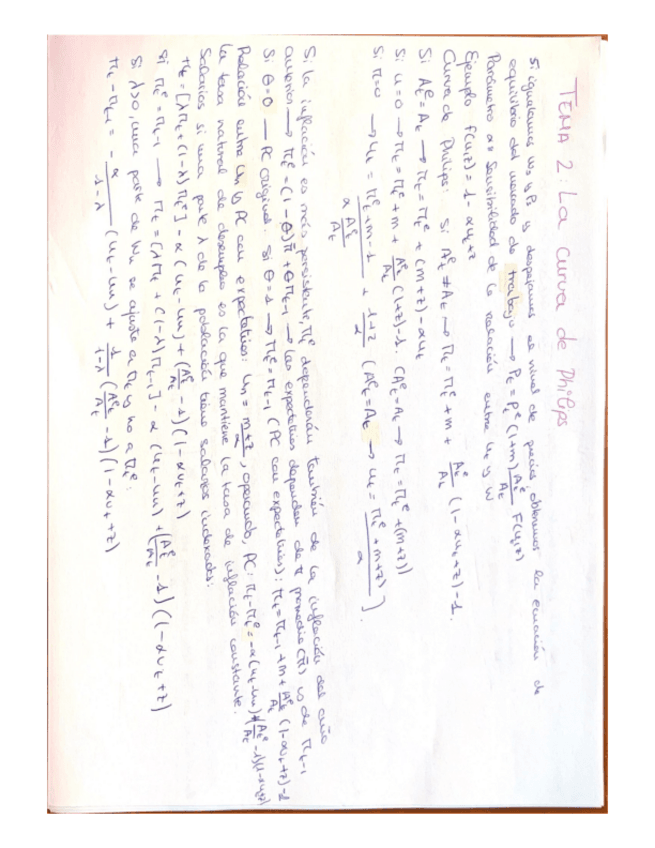 TEMA 2: La curva de Philips
Si igualamos ws y Ps y despejamos el nivel de precios, obtenemos la ecuación de
equilibrio del mercado de trabajo → Pt = Pt^e (1+m) At^e/At F(u,z)
Parámetro α: Sensibilidad de la relación entre ut y W
Ejemplo F(u,z) = 1 - αut z
Curva de Philips: Si At^e ≠ At → πt = πt^e + m + At^e/At (1 - αut + z) - 1.
Si At^e = At → πt = πt^e + (m+z) - αut
Si u=0 → πt = πt^e + m + At^e/At (1+z) - 1. (At^e = At → πt = πt^e + (m+z))
Si π=0 → ut = (πt^e + m - 1)/(α At^e/At) + (1+z)/α (At^e = At → ut = (πt^e + m + z)/α).
Si la inflación es más persistente, πt^e dependerán también de la inflación del año
anterior → πt^e = (1-θ)π̄ + θπt-1 → las expectativas dependen de π promedio (π̄) y de πt-1
Si θ=0 → PC original. Si θ=1 → πt^e = πt-1 (PC con expectativas): πt = πt-1 + m + At^e/At (1 - αut + z) - 1
Relación entre un y PC con expectativas: un = (m+z)/α, operando, PC: πt - πt^e = -α(ut - un) + (At^e/At - 1)(1 - αut + z)
La tasa natural de desempleo es la que mantiene la tasa de inflación constante.
Salarios si una parte λ de la población tiene salarios indexados:
πt = [λπt + (1-λ)πt^e] - α (ut - un) + (At^e/At - 1)(1 - αut + z)
Si πt^e = πt-1 → πt = [λπt + (1-λ)πt-1] - α (ut - un) + (At^e/At - 1)(1 - αut + z)
Si λ>0, una parte de Wn se ajusta a πt y no a πt^e:
πt - πt-1 = - α/(1-λ) (ut - un) + 1/(1-λ) (At^e/At - 1)(1 - αut + z)